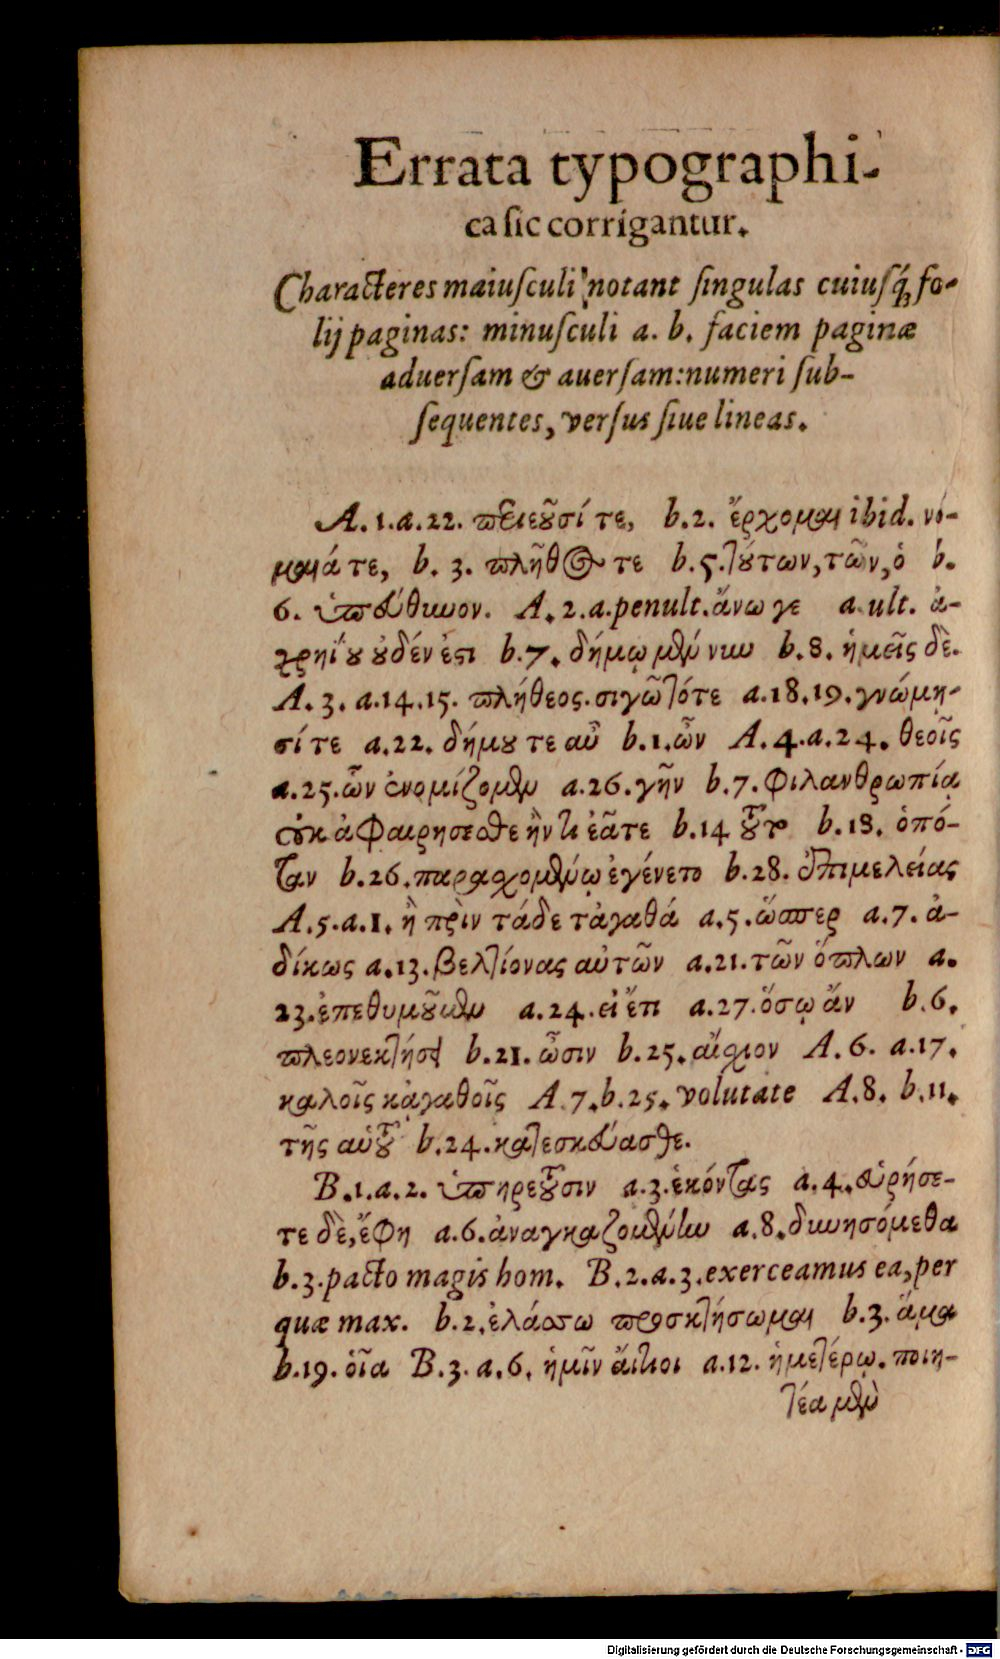 Errata typographi-
ca sic corrigantur.
Characteres maiusculi notant singulas cuiusq́; fo-
lij paginas: minusculi a. b. faciem paginæ
aduersam & auersam: numeri sub-
sequentes, versus siue lineas.
A. 1. a. 22. b. 2. ἔρχομαι ibid. νέ-
μαιά τε, b. 3. πλῆθός τε b. 5. τούτων, τῶν, ὁ b.
6. ὑπεύθυνον. A. 2. a. penult. ἄνω γε a. ult. ἀ-
χρηΐου οὐδέν ἐστι b. 7. δήμῳ μὲν νυν b. 8. ἡμεῖς δὲ.
A. 3. a. 14. 15. πλήθεος. σιγῶτότε a. 18. 19. γνώμη-
σί τε a. 22. δήμου τε αὖ b. 1. ὧν A. 4. a. 24. θεοῖς
a. 25. ὧν ἐνομίζομεν a. 26. γῆν b. 7. φιλανθρωπίᾳ
οὐκ ἀφαιρήσεσθε ἤν τι ἐᾶτε b. 14 τοῦτο b. 18. ὁπό-
ταν b. 26. παραχομένῳ ἐγένετο b. 28. ἐπιμελείας
A. 5. a. 1. ἢ πρὶν τάδε τἀγαθά a. 5. ὥσπερ a. 7. ἀ-
δίκως a. 13. βελτίονας αὐτῶν a. 21. τῶν ὅπλων a.
23. ἐπεθυμοῦμεν a. 24. εἰ ἔτι a. 27. ὅσῳ ἄν b. 6.
πλεονεκτήσει b. 21. ὦσιν b. 25. αἴσχιον A. 6. a. 17.
καλοῖς κἀγαθοῖς A. 7. b. 25. volutate A. 8. b. 11.
τῆς αὐτοῦ b. 24. κατεσκεύασθε.
B. 1. a. 2. ὑπηρετοῦσιν a. 3. ἑκόντας a. 4. εὑρήσε-
τε δὲ, ἔφη a. 6. ἀναγκαζομένην a. 8. δυνησόμεθα
b. 3. pacto magis hom. B. 2. a. 3. exerceamus ea, per
quæ max. b. 2. ἐλάσσω προσκτήσωμαι b. 3. ἅμα
b. 19. οἷα B. 3. a. 6. ἡμῖν αἴτιοι a. 12. ἡμετέρῳ. ποιη-
τέα μὲν
Digitalisierung gefördert durch die Deutsche Forschungsgemeinschaft - DFG